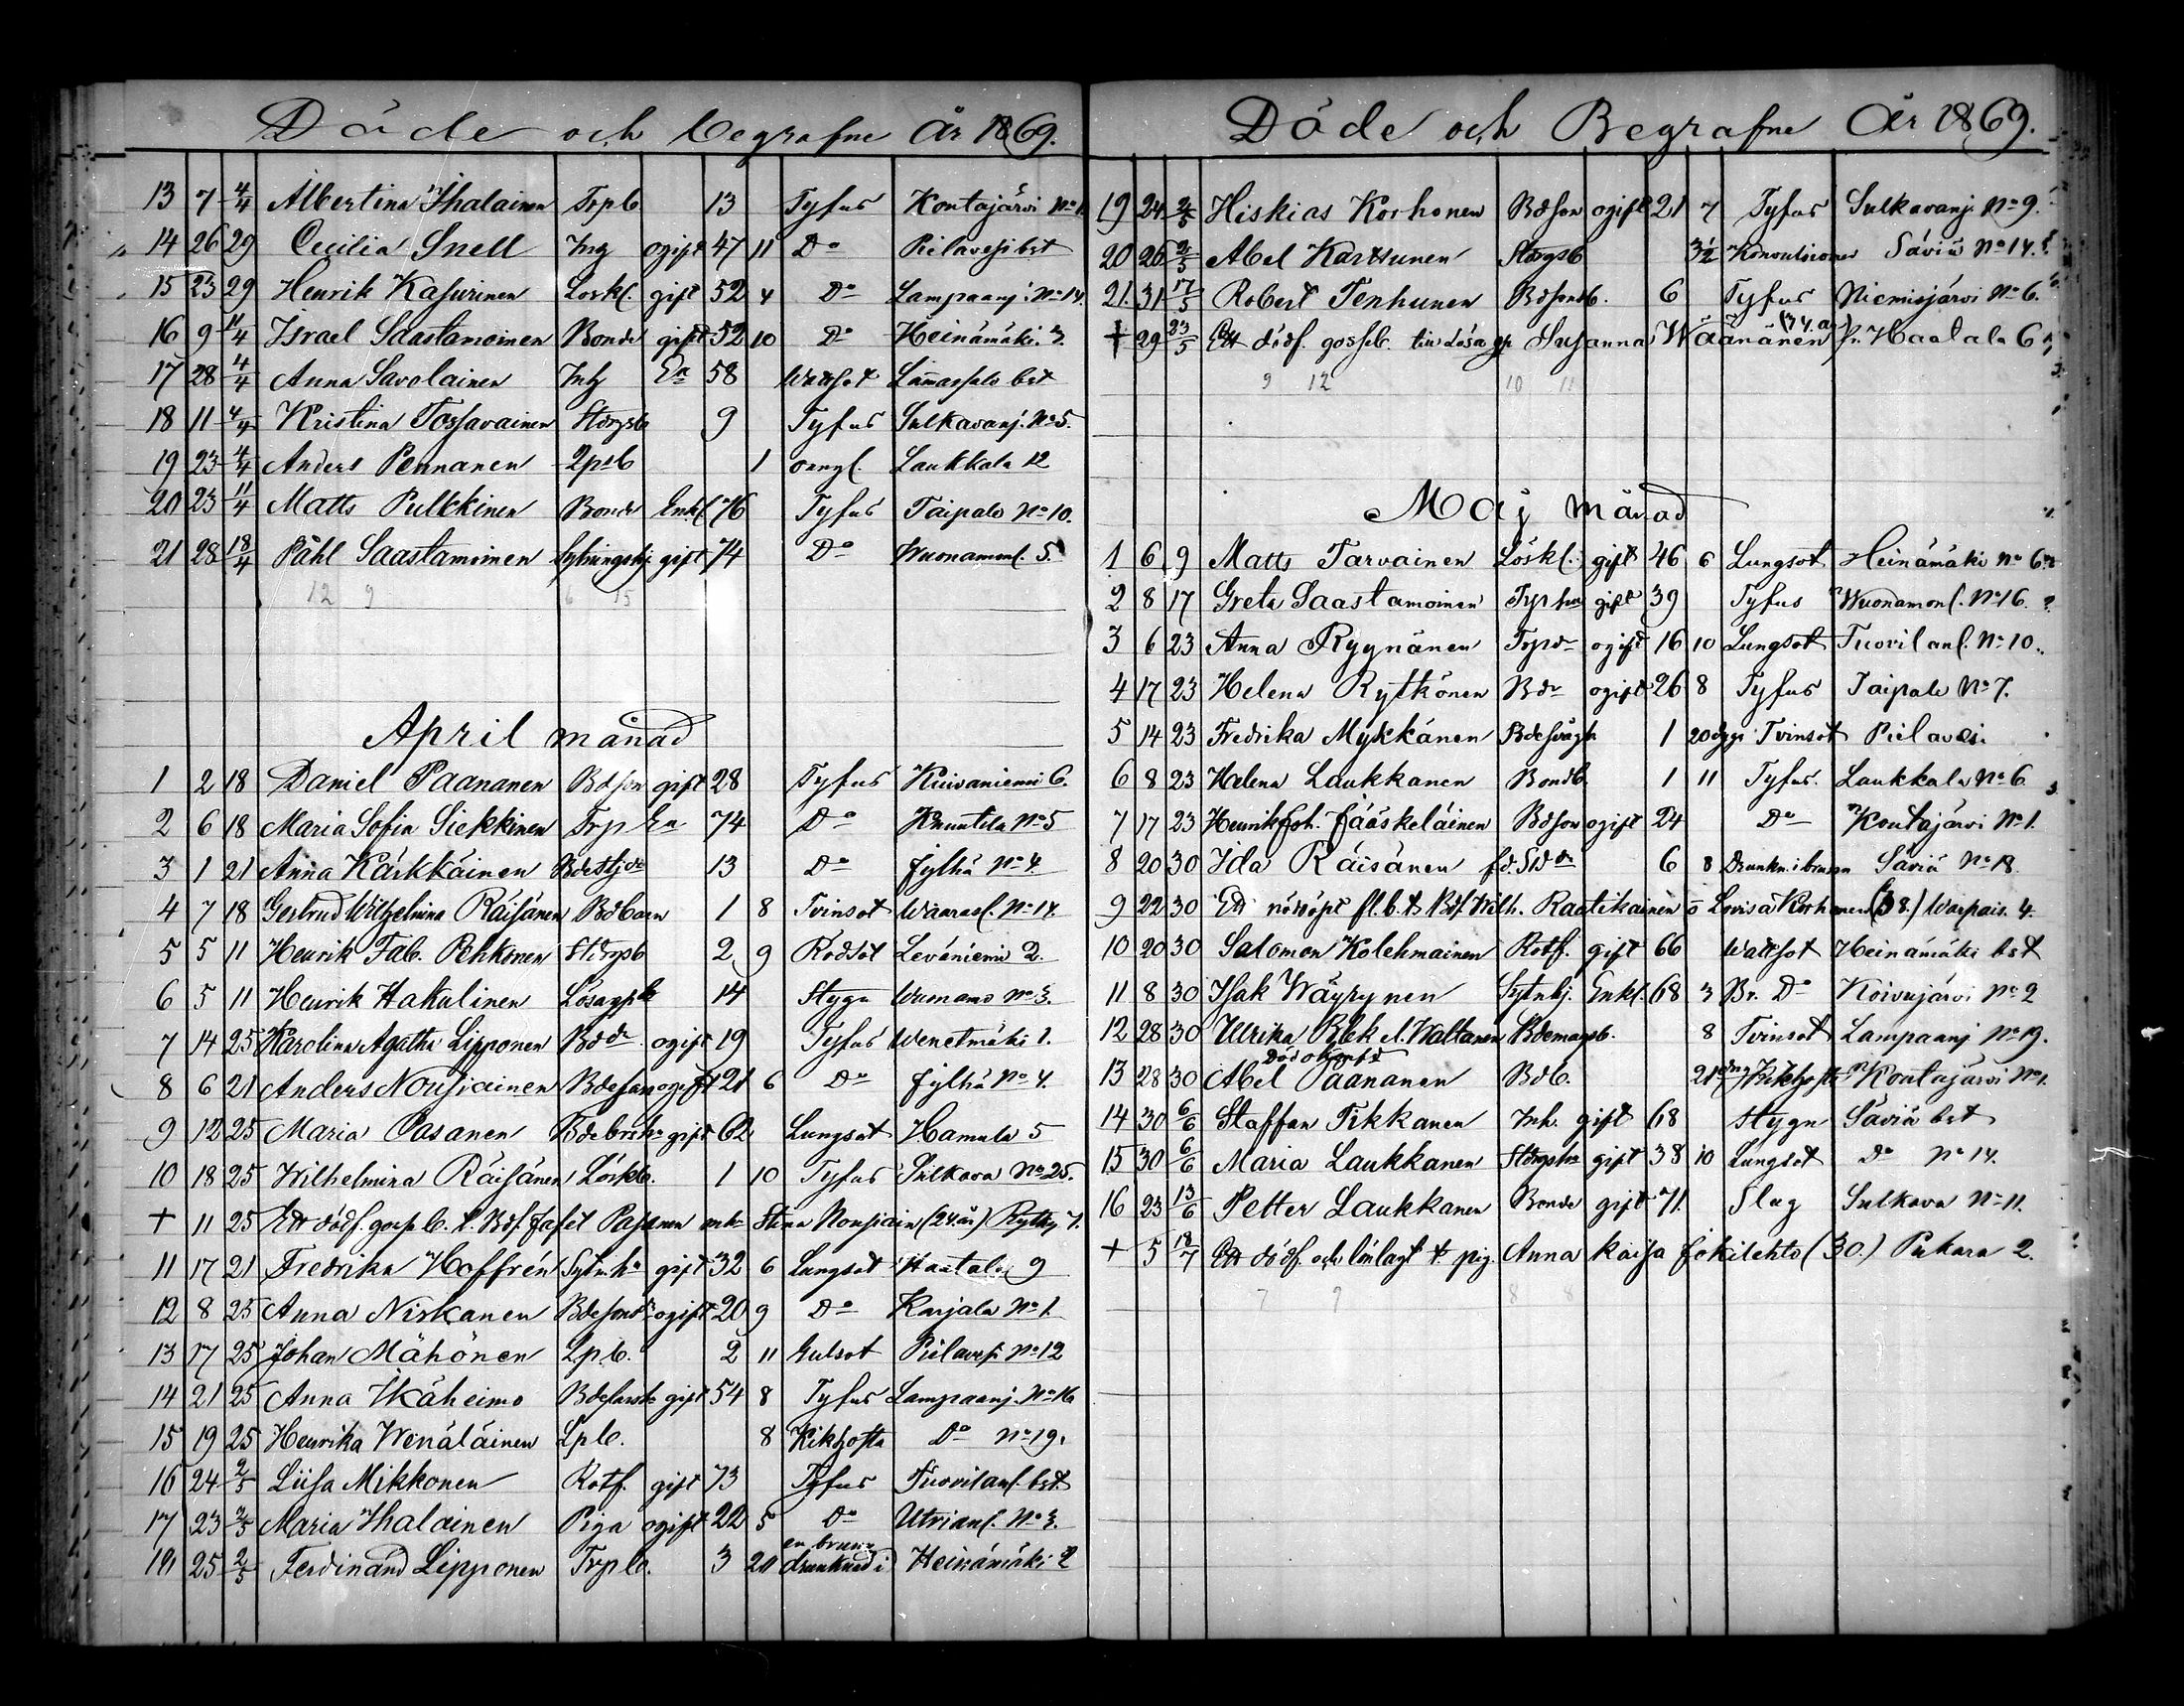 Döde och begrafne År 1869.
13 7 4/4 Albertina Ihalainen Trpb 13 Tyfus Koutajärvi No 1
14 26 29 Cecilia Snell Ing ogift 47 11 Do Pielavesi bst
15 23 29 Henrik Kasurinen Löskl. gift 52 4 Do Lampaanj. No 14.
16 9 11/4 Israel Saastamoinen Bonde gift 52 10 Do Heinämäki 3.
17 28 4/4 Anna Savolainen Inh Ea 58 Wattsot Lämassalo bst
18 11 4/4 Kristina Tossavainen Stdrpsb 9 Tyfus Sulkavanj. No 5.
19 23 4/4 Anders Pennanen Lpsb 1 oangf. Laukkala 12
20 23 11/4 Matts Pulkkinen Bonde Enkl 76 Tyfus Taipale No 10.
21 28 18/4 Påhl Saastamoinen Sytningshj gift 74 Do Wuonamonl. 5
12 9 6 15
April månad
1 2 18 Daniel Paananen Bdson gift 28 Tyfus Kuivaniemi 6.
2 6 18 Maria Sofia Siekkinen Trp Ea 74 Do Knuutila No 5
3 1 21 Anna Kärkkäinen Bdestjdr 13 Do Jylhä No 4.
4 7 18 Gertrud Wilhelmina Räisänen Bdbarn 1 8 Tvinsot Waarasl. No 14.
5 5 11 Henrik Fab. Pehkonen Stdrpsb 2 9 Rödsot Leväniemi 2.
6 5 11 Henrik Hakulinen Lösagpb 14 Stygn Wumano No 3.
7 14 25 Karolina Agatha Lipponen Bddr ogift 19 Tyfus Wenetmäki 1.
8 6 21 Anders Nousiainen Bdeson ogift 21 6 Do Jylhä No 4.
9 12 25 Maria Oasanen Bdebrorh gift 62 Lungsot Hamula 5
10 18 25 Wilhelmina Räisänen Löskb. 1 10 Tyfus Sulkava No 25.
+ 11 25 Ett dödf. gossb. t. Bdf. Jafet Pasanen o h Stina Nousiain (24 år) Rytky 7.
11 17 21 Fredrika Hoffrén Sytn.ha gift 32 6 Lungsot Haatala 9
12 8 25 Anna Niskanen Bdesondr ogift 20 9 Do Karjala No 1.
13 17 25 Johan Mähönen Lpb. 2 11 Gulsot Pielavesi No 12
14 21 25 Anna Ikäheimo gift 54 8 Tyfus Lampaanj. No 16
15 19 25 Henrika Wenäläinen Lpb. 8 Kikhosta Do No 19.
16 24 2/5 Liisa Mikkonen Rotf. gift 73 Tyfus Tuovilanl. bst
17 23 2/5 Maria Ihalainen Piga ogift 22 5 Do Utrianl. No 3.
18 25 2/5 Ferdinand Lipponen Trpb. 3 20 drunknad i en brunn Heinämäki 2
Döde och Begrafne År 1869.
19 24 2/5 Hiskias Korhonen Bdson ogift 21 7 Tyfus Sulkavanj No 9.
20 26 2/5 Abel Karttunen Stdrpsb 3 1/2 Konvulsioner Säviä No 14.
21. 31 17/5 Robert Tenhunen Bdsonb. 6 Tyfus Niemisjärvi No 6.
+ 29 23/5 Ett dödf. gosseb. till lösa qp Susanna Wäänänen (34. år) fr. Haatala 6
9 12 10 11
Maj månad
1 6 9 Matts Tarvainen Löskl. gift 46 6 Lungsot Heinämäki No 6
2 8 17 Greta Saastamoinen Trpha gift 39 Tyfus Wuonamonl. No 16.
3 6 23 Anna Ryynänen Trpdr ogift 16 10 Lungsot Tuovilanl. No 10.
4 17 23 Helena Rytkönen Bdr ogift 26 8 Tyfus Taipale No 7.
5 14 23 Fredrika Mykkänen Bdesvågb 1 20 dgr Tvinsot Pielavesi
6 8 23 Helena Laukkanen Bondb. 1 11 Tyfus. Laukkala No 6
7 17 23 Henrik Joh. Jääskeläinen Bdson ogift 24 Do Koutajärvi No 1.
8 20 30 Ida Räisänen fd. Sddr 6 8 Drunkn. i brunn Säviä No 18.
9 22 30 Ett nödöpt fl.b. t. Bdf. Wilh. Raatikainen o Lovisa Korhonen (38.) Warpais. 4.
10 20 30 Salomon Kolehmainen Rotf. gift 66 Wattsot Heinämäki bst
11 8 30 Isak Wäyrynen Sytnhj. Enkl. 68 3 Br. Do Koivujärvi No 2
12 28 30 Ulrika Rbek el. Waltanen Bdemagsb. 8 Tvinsot Lampaanj No 19.
13 28 30 Abel Paananen Bdb. 21 dgr Kikhosta Koutajärvi No 1.
14 30 6/6 Staffan Tikkanen Inh. gift 68 Stygn Säviä bst
15 30 6/6 Maria Laukkanen Stdrpsha gift 38 10 Lungsot Do No 14.
16 23 13/6 Petter Laukkanen Bonde gift 71. Slag Sulkava No 11.
+ 5 18/7 Ett dödf. och lönlagt t. pig. Anna Kaisa Jokilehto (30.) Pukara 2.
7 9 8 8